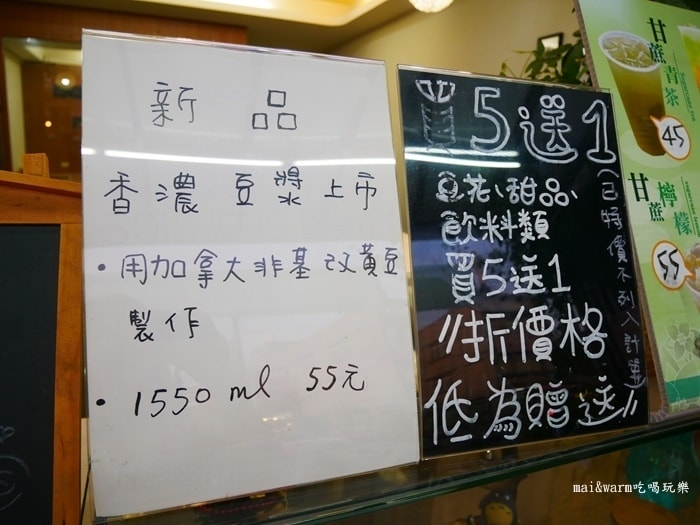 新品
香濃豆漿上市
・用加拿大非基改黃豆
製作
・1550 ml 55元
買5送1
豆花、甜品、
飲料類
買5送1
//折價格
低為贈送//
(已特價不列入計算)
甘蔗青茶
45
甘蔗檸檬
55
mai&warm吃喝玩樂